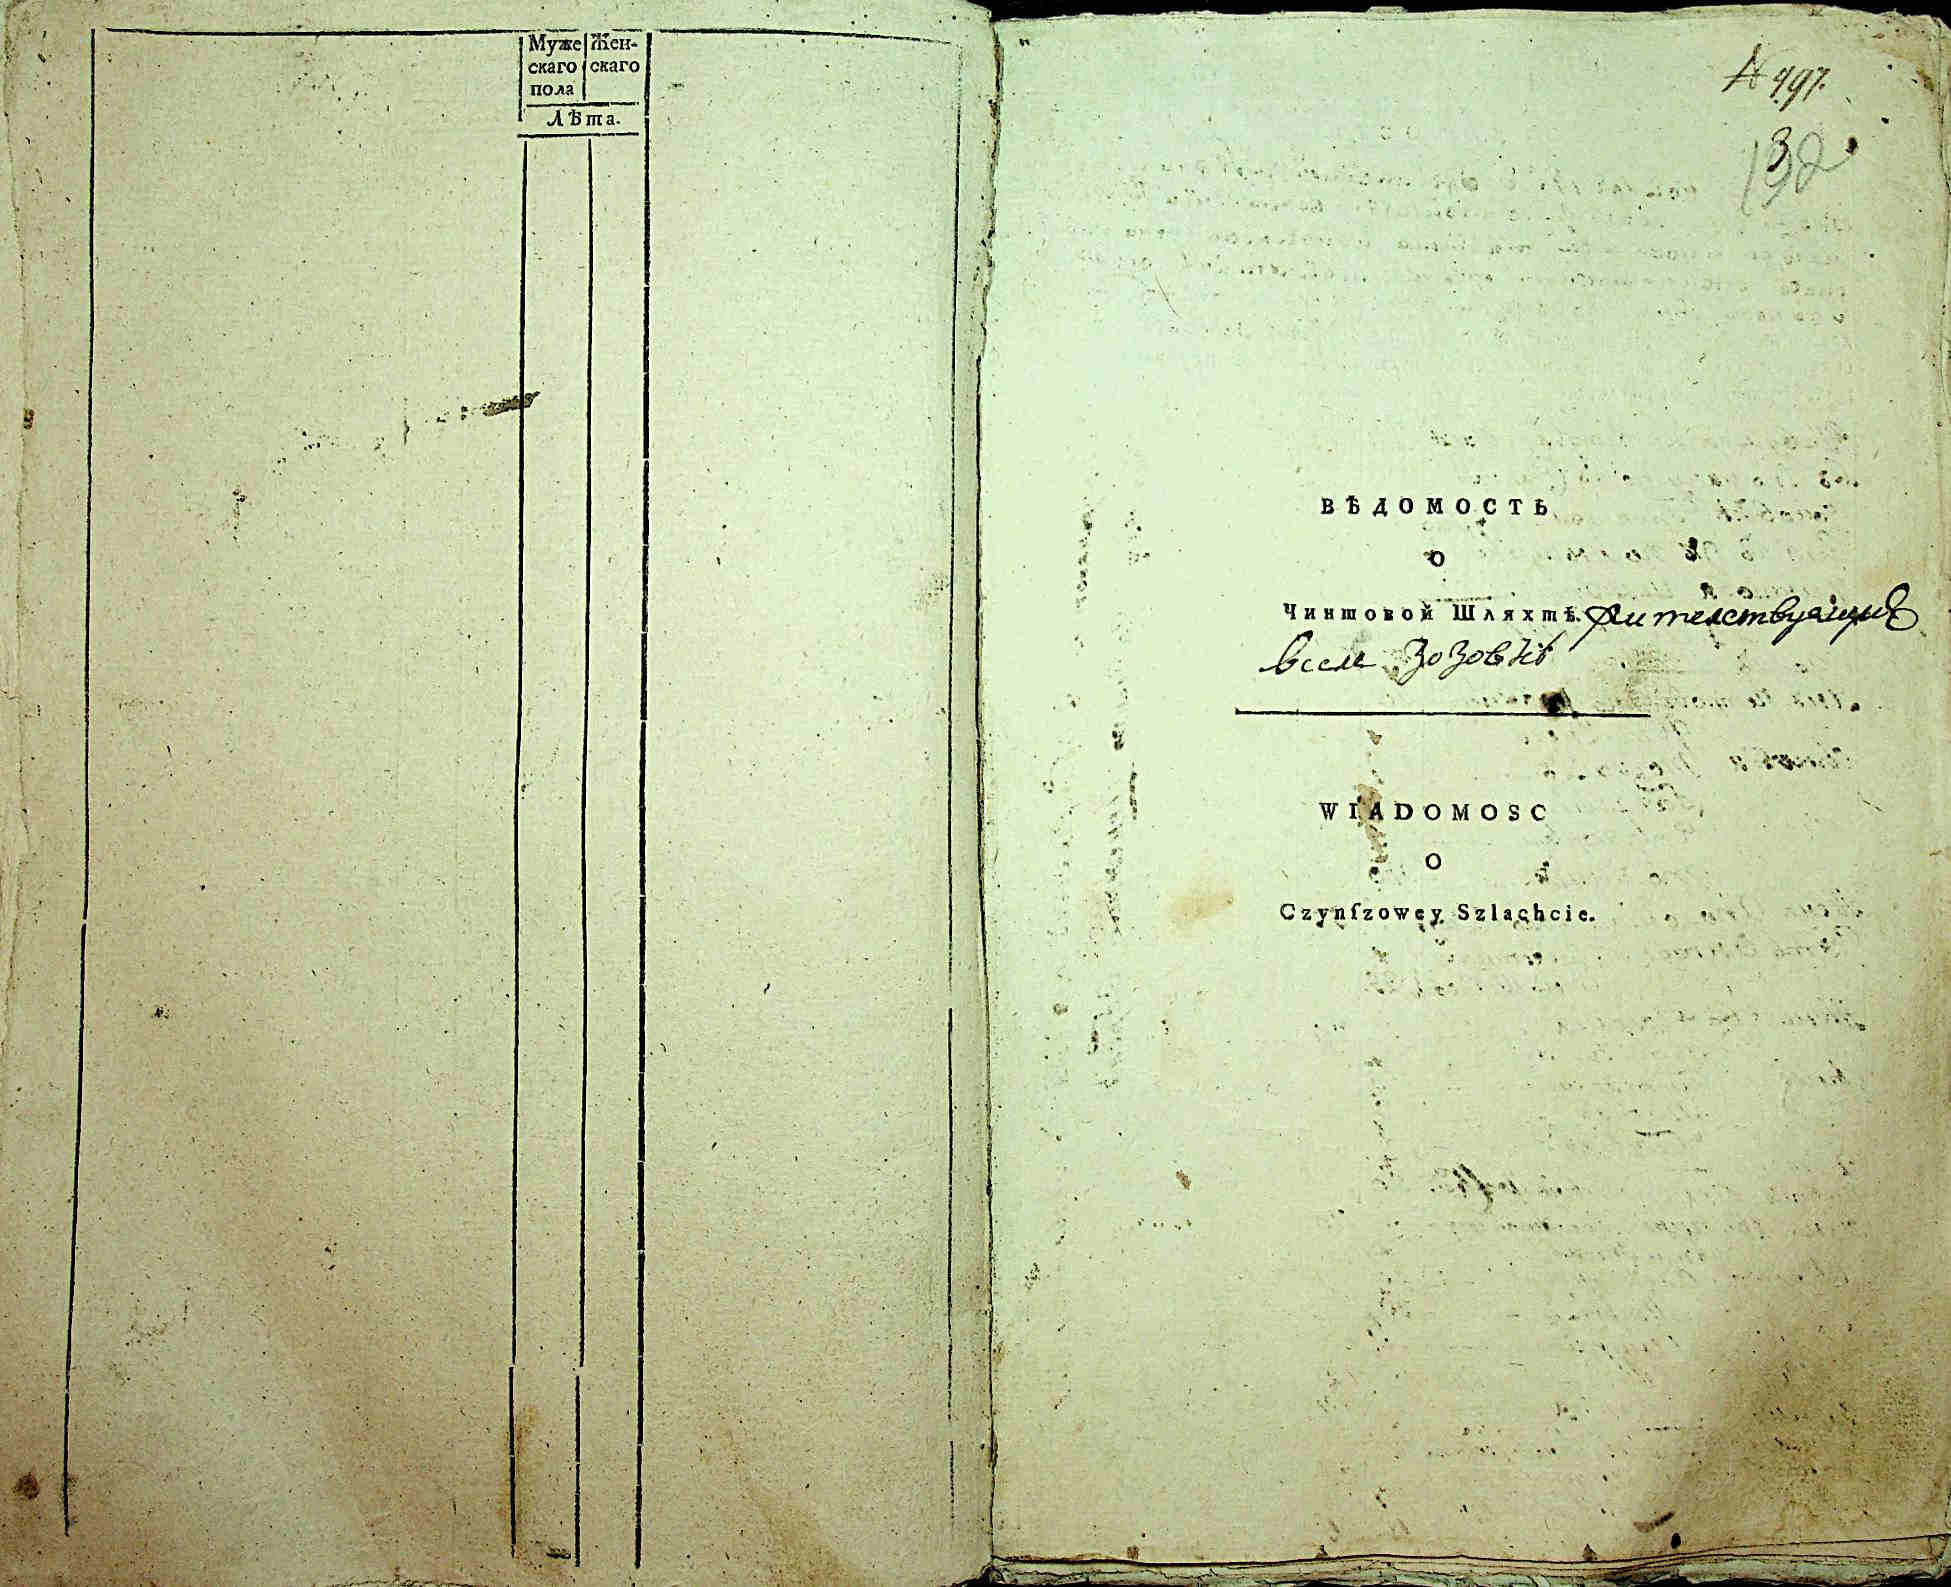 Муже Жен-
скаго скаго
пола
Лѣта.
№ 497.
132
ВѢДОМОСТЬ
О
Чиншовой Шляхтѣ. Жителствующие
вселе Зозовке
WIADOMOSC
O
Czynſzowey Szlachcie.